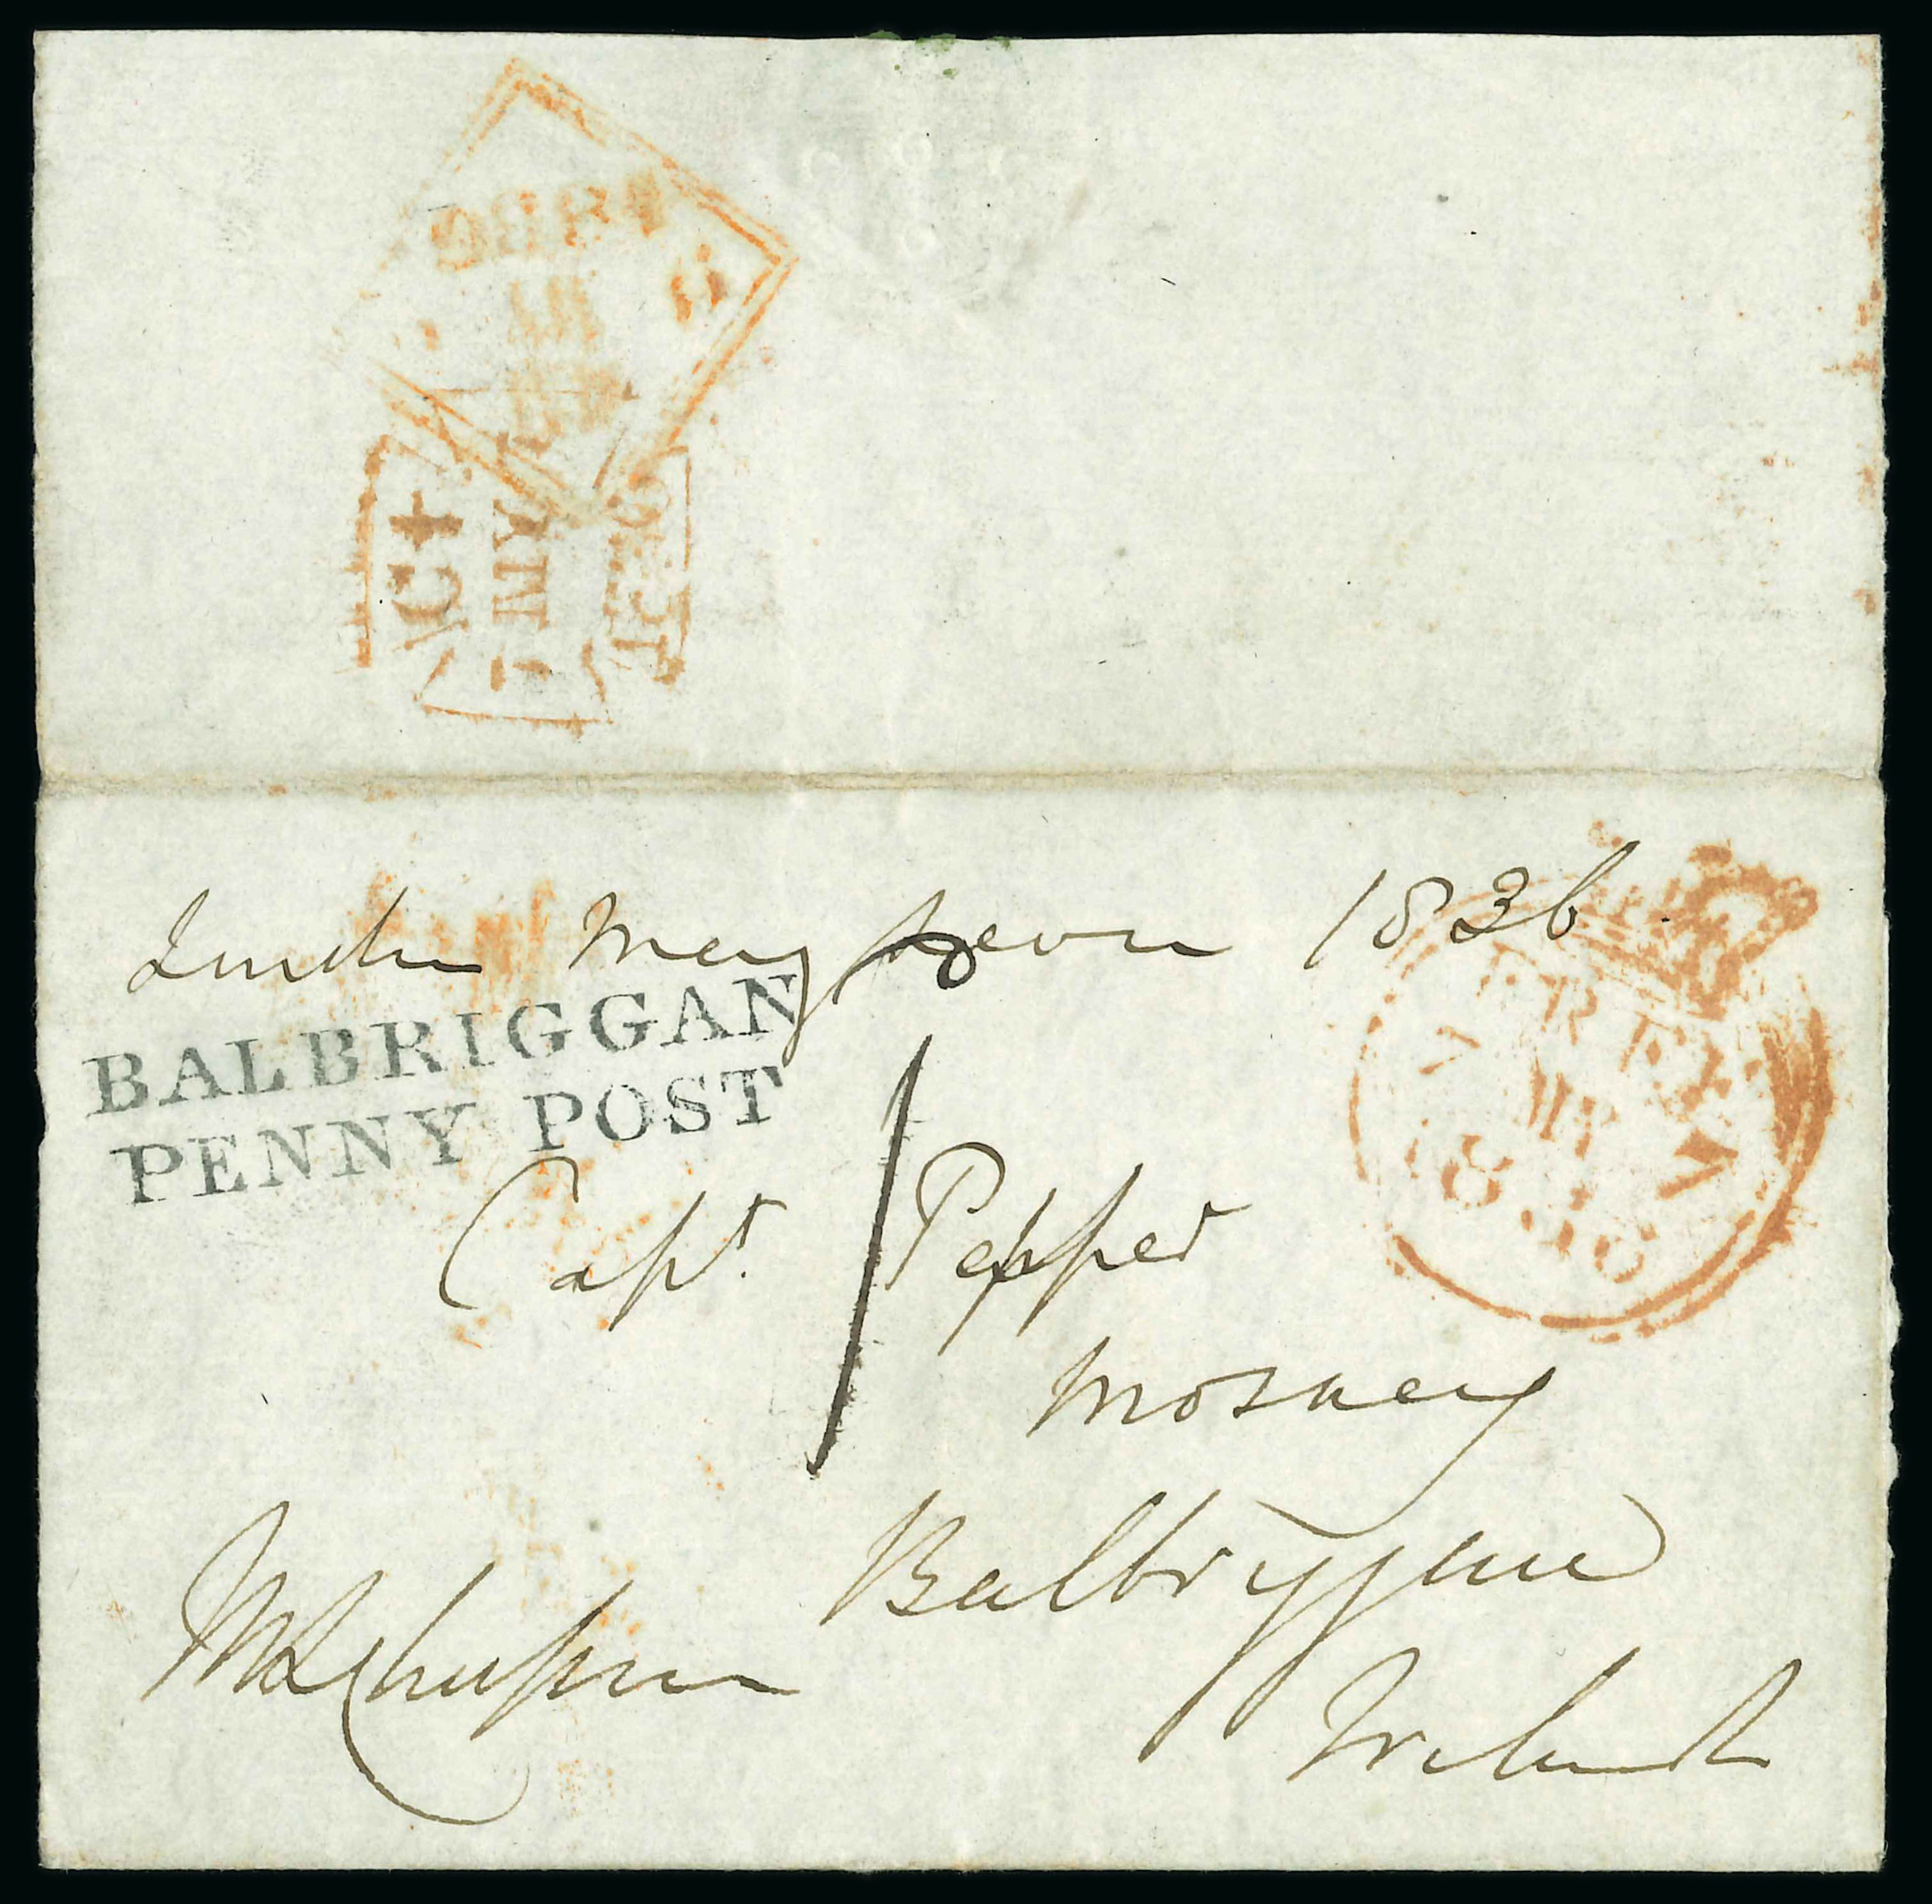 1836
MY
London May seven 1836
FREE
7 MY 7
1836
BALBRIGGAN
PENNY POST
1
Capt. Pepper
Mosney
Balbriggan
Ireland